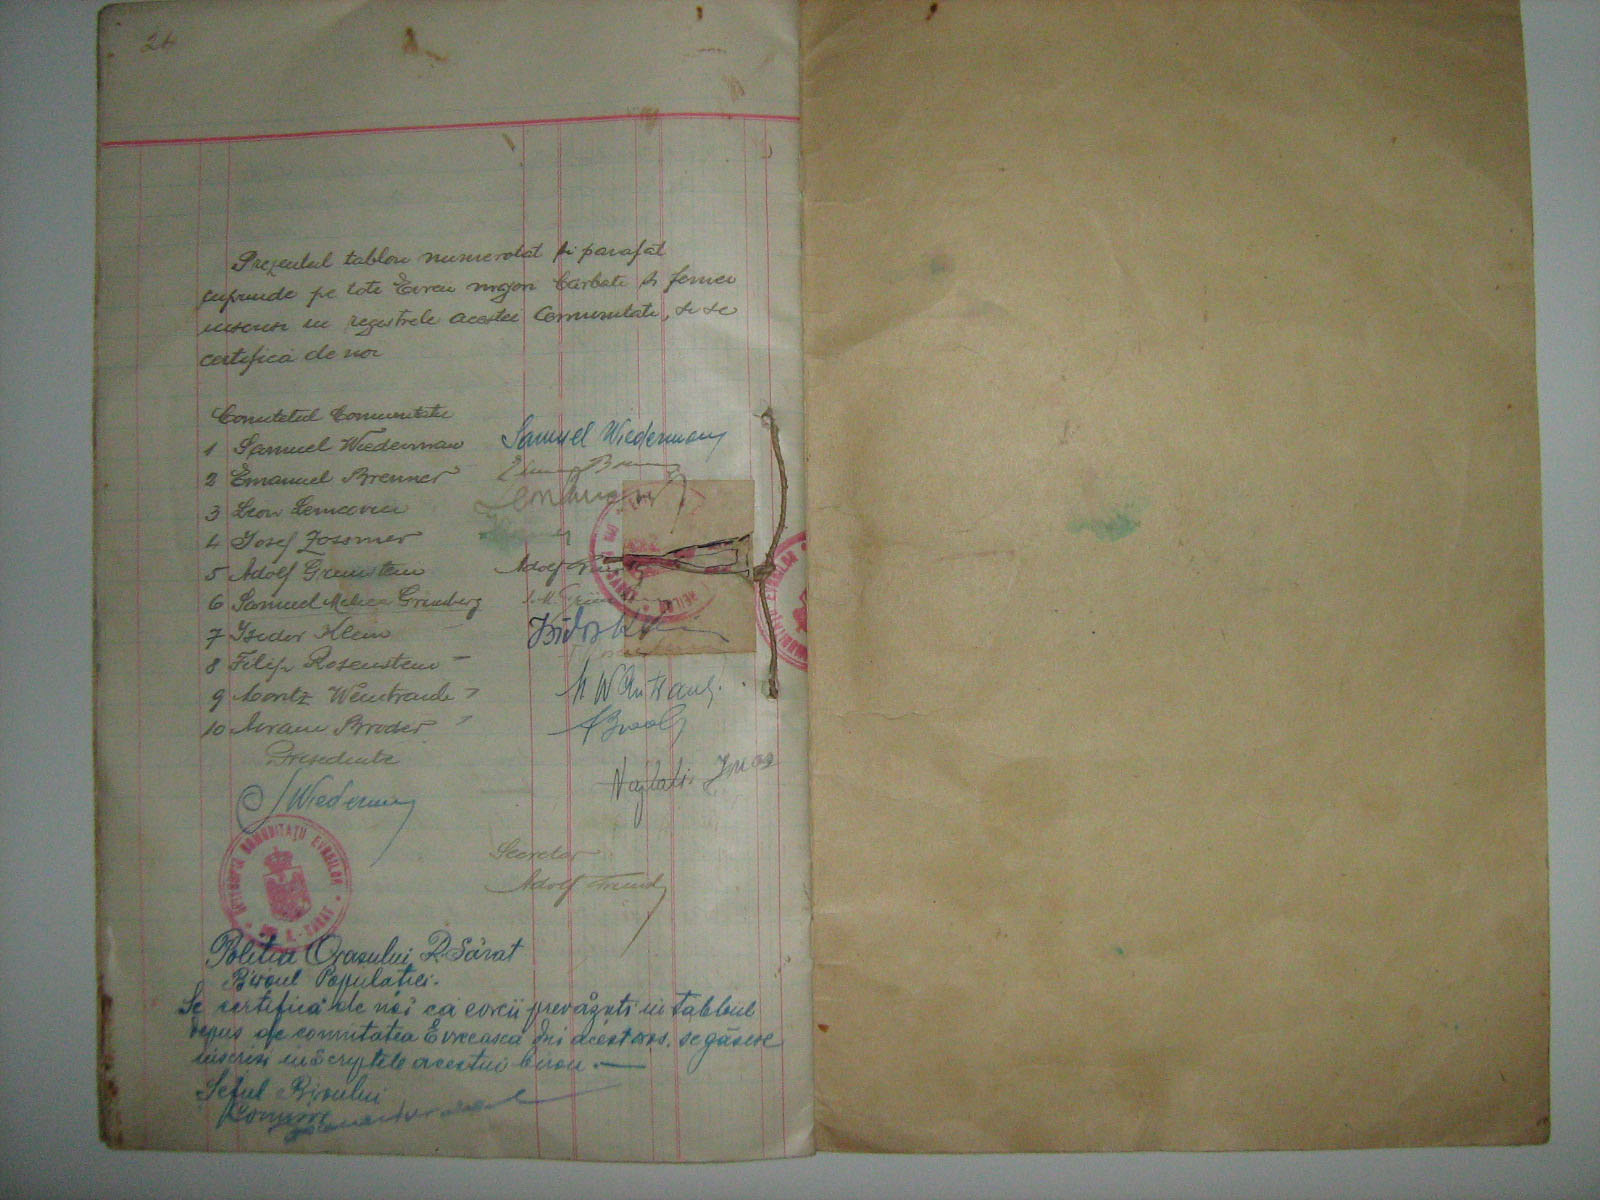 24
Prezentul tablou numerotat și parafat
cuprinde pe toti Evreii majori barbati si femei
inscrisi in registrele acestei Comunitati, si se
certifica de noi
Comitetul Comunitatii
1 Samuel Wiederman Samuel Wiederman
2 Emanuel Brenner
3 Leon Lemcovici
4 Iosef Zossmer
5 Adolf Grunstein Adolf
6 Samuel Melica Grinberg
7 Isidor Klein Isidor
8 Filip Rosenstein
9 Moritz Weintraub M Weintraub
10 Avram Broder ABrod
Presedinte
Naftali
S Wiederman
COMUNITATII EVREILOR
R.-SARAT
Secretar
Adolf
Politia Orasului R. Sărat
Biroul Populatiei.
Se certifică de noi că evreii prevăzuti in tabloul
depus de comnitatea Evreească din acest oras. se găsesc
inscrisi in scriptele acestui birou.—
Seful Biroului